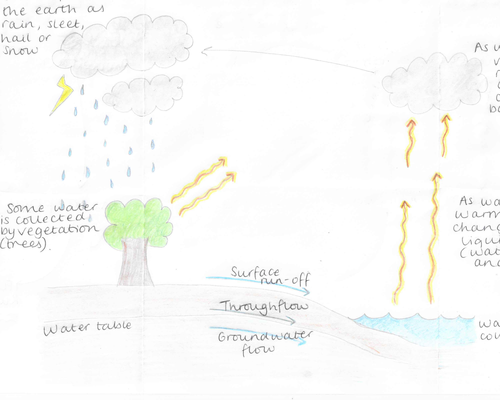 the earth as
rain, sleet,
hail or
snow
As
Some water
is collected
by vegetation
(trees).
As
warm
chang
liqui
(wat
an
Surface
run-off
Throughflow
Groundwater
flow
Water table
wa
co